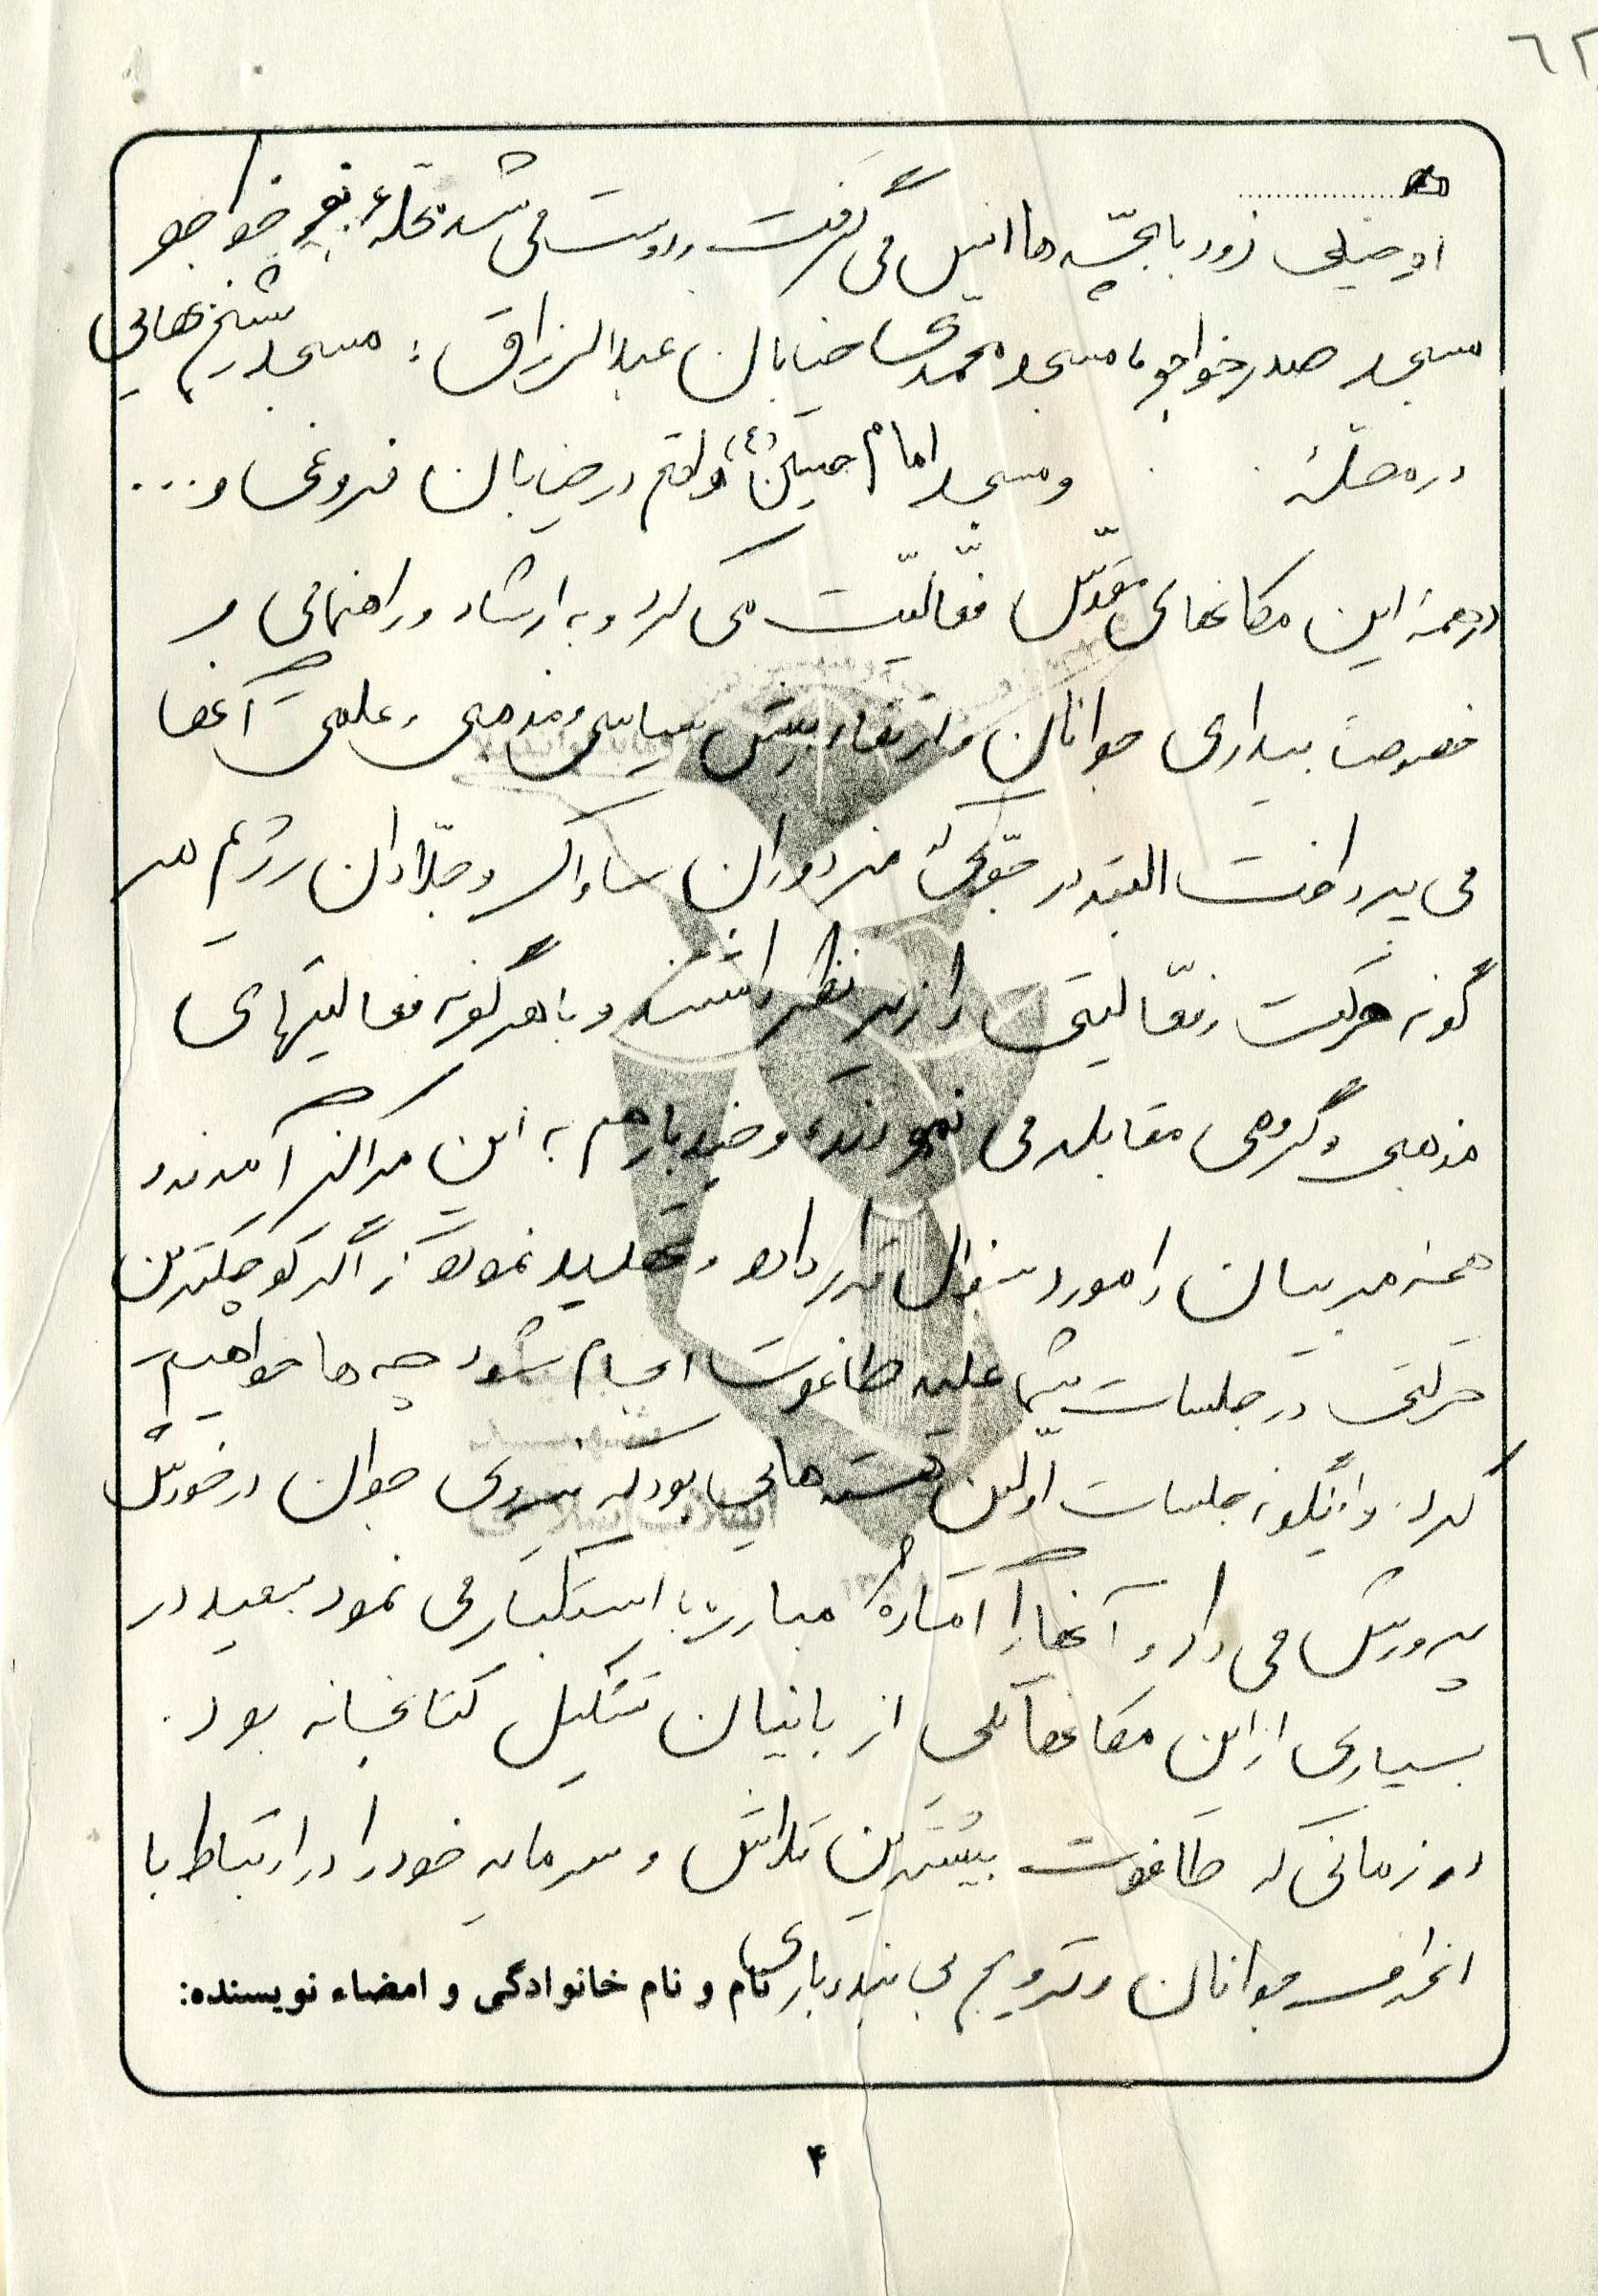 ٦٢
او خیلی زود با بچّه ها انیس می گرفت و دوست می شد محلهٔ خواجو
مسجد صدر خواجو، مسجد محمدی خیابان عبدالرزاق؛ مسجد شیخ بهائی
در محلهٔ . . و مسجد امام حسین (ع) واقع در خیابان فروغی و ...
در همهٔ این مکانهای مقدّس فعّالیّت می کرد و به ارشاد و راهنمائی و
خصوصاً بیداری جوانان و ارتقاء بینش سیاسی و مذهبی و علمی آنها
می پرداخت البته در جوّی که مزدوران ساواک و جلّادان رژیم هر
گونه حرکت و فعّالیتی را زیر نظر داشتند و با هر گونه فعالیتهای
مذهبی و گروهی مقابله می نمودند، و چند بار هم به این مراکز آمدند و
همهٔ مربیان را مورد سئوال قرار داده و تهدید نمودند که اگر کوچکترین
حرکتی در جلسات شما علیه طاغوت انجام شود چه ها خواهیم
کرد. و اینگونه جلسات اولین هسته هایی بود که نیروی جوان در خودش
پرورش می داد و آنها را آمادهٔ مبارزه با استکبار می نمود سعید در
بسیاری از این مکانها یکی از بانیان تشکیل کتابخانه بود.
در زمانی که طاغوت بیشترین تلاش و سرمایه خود را در ارتباط با
انحراف جوانان و ترویج بی بندوباری
نام و نام خانوادگی و امضاء نویسنده:
۴